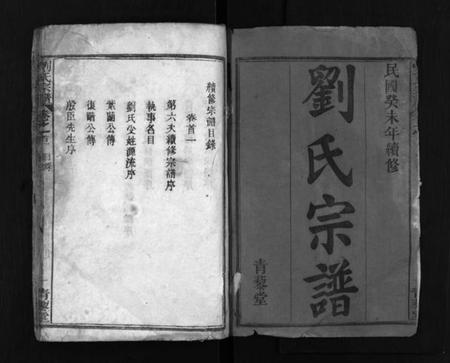 民國癸未年續修
劉氏宗譜
青藜堂
續修宗譜目錄
卷首一
第六次續修宗譜序
執事名目
劉氏受姓源流序
公傳
復嗣公傳
殷臣先生序
劉氏宗譜
青藜堂